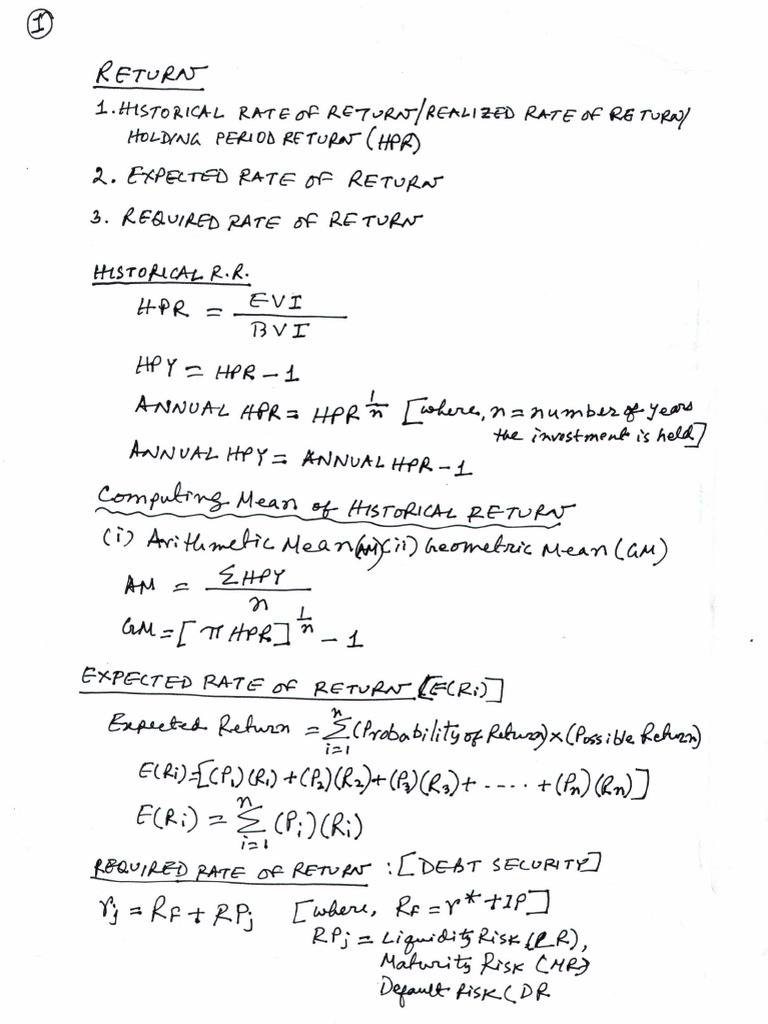 1
RETURN
1. HISTORICAL RATE OF RETURN/REALIZED RATE OF RETURN/
HOLDING PERIOD RETURN (HPR)
2. EXPECTED RATE OF RETURN
3. REQUIRED RATE OF RETURN
HISTORICAL R.R.
HPR = EVI / BVI
HPY = HPR - 1
ANNUAL HPR = HPR^1/n [where, n = number of years
the investment is held]
ANNUAL HPY = ANNUAL HPR - 1
Computing Mean of HISTORICAL RETURN
(i) Arithmetic Mean (AM) (ii) Geometric Mean (GM)
AM = ΣHPY / n
GM = [π HPR]^1/n - 1
EXPECTED RATE OF RETURN [E(Ri)]
Expected Return = Σ^n i=1 (Probability of Return) x (Possible Return)
E(Ri) = [(P1)(R1) + (P2)(R2) + (P3)(R3) + ..... + (Pn)(Rn)]
E(Ri) = Σ^n i=1 (Pi)(Ri)
REQUIRED RATE OF RETURN : [DEBT SECURITY]
rj = RF + RPj [where, RF = r* + IP]
RPj = Liquidity Risk (LR),
Maturity Risk (MR)
Default Risk (DR